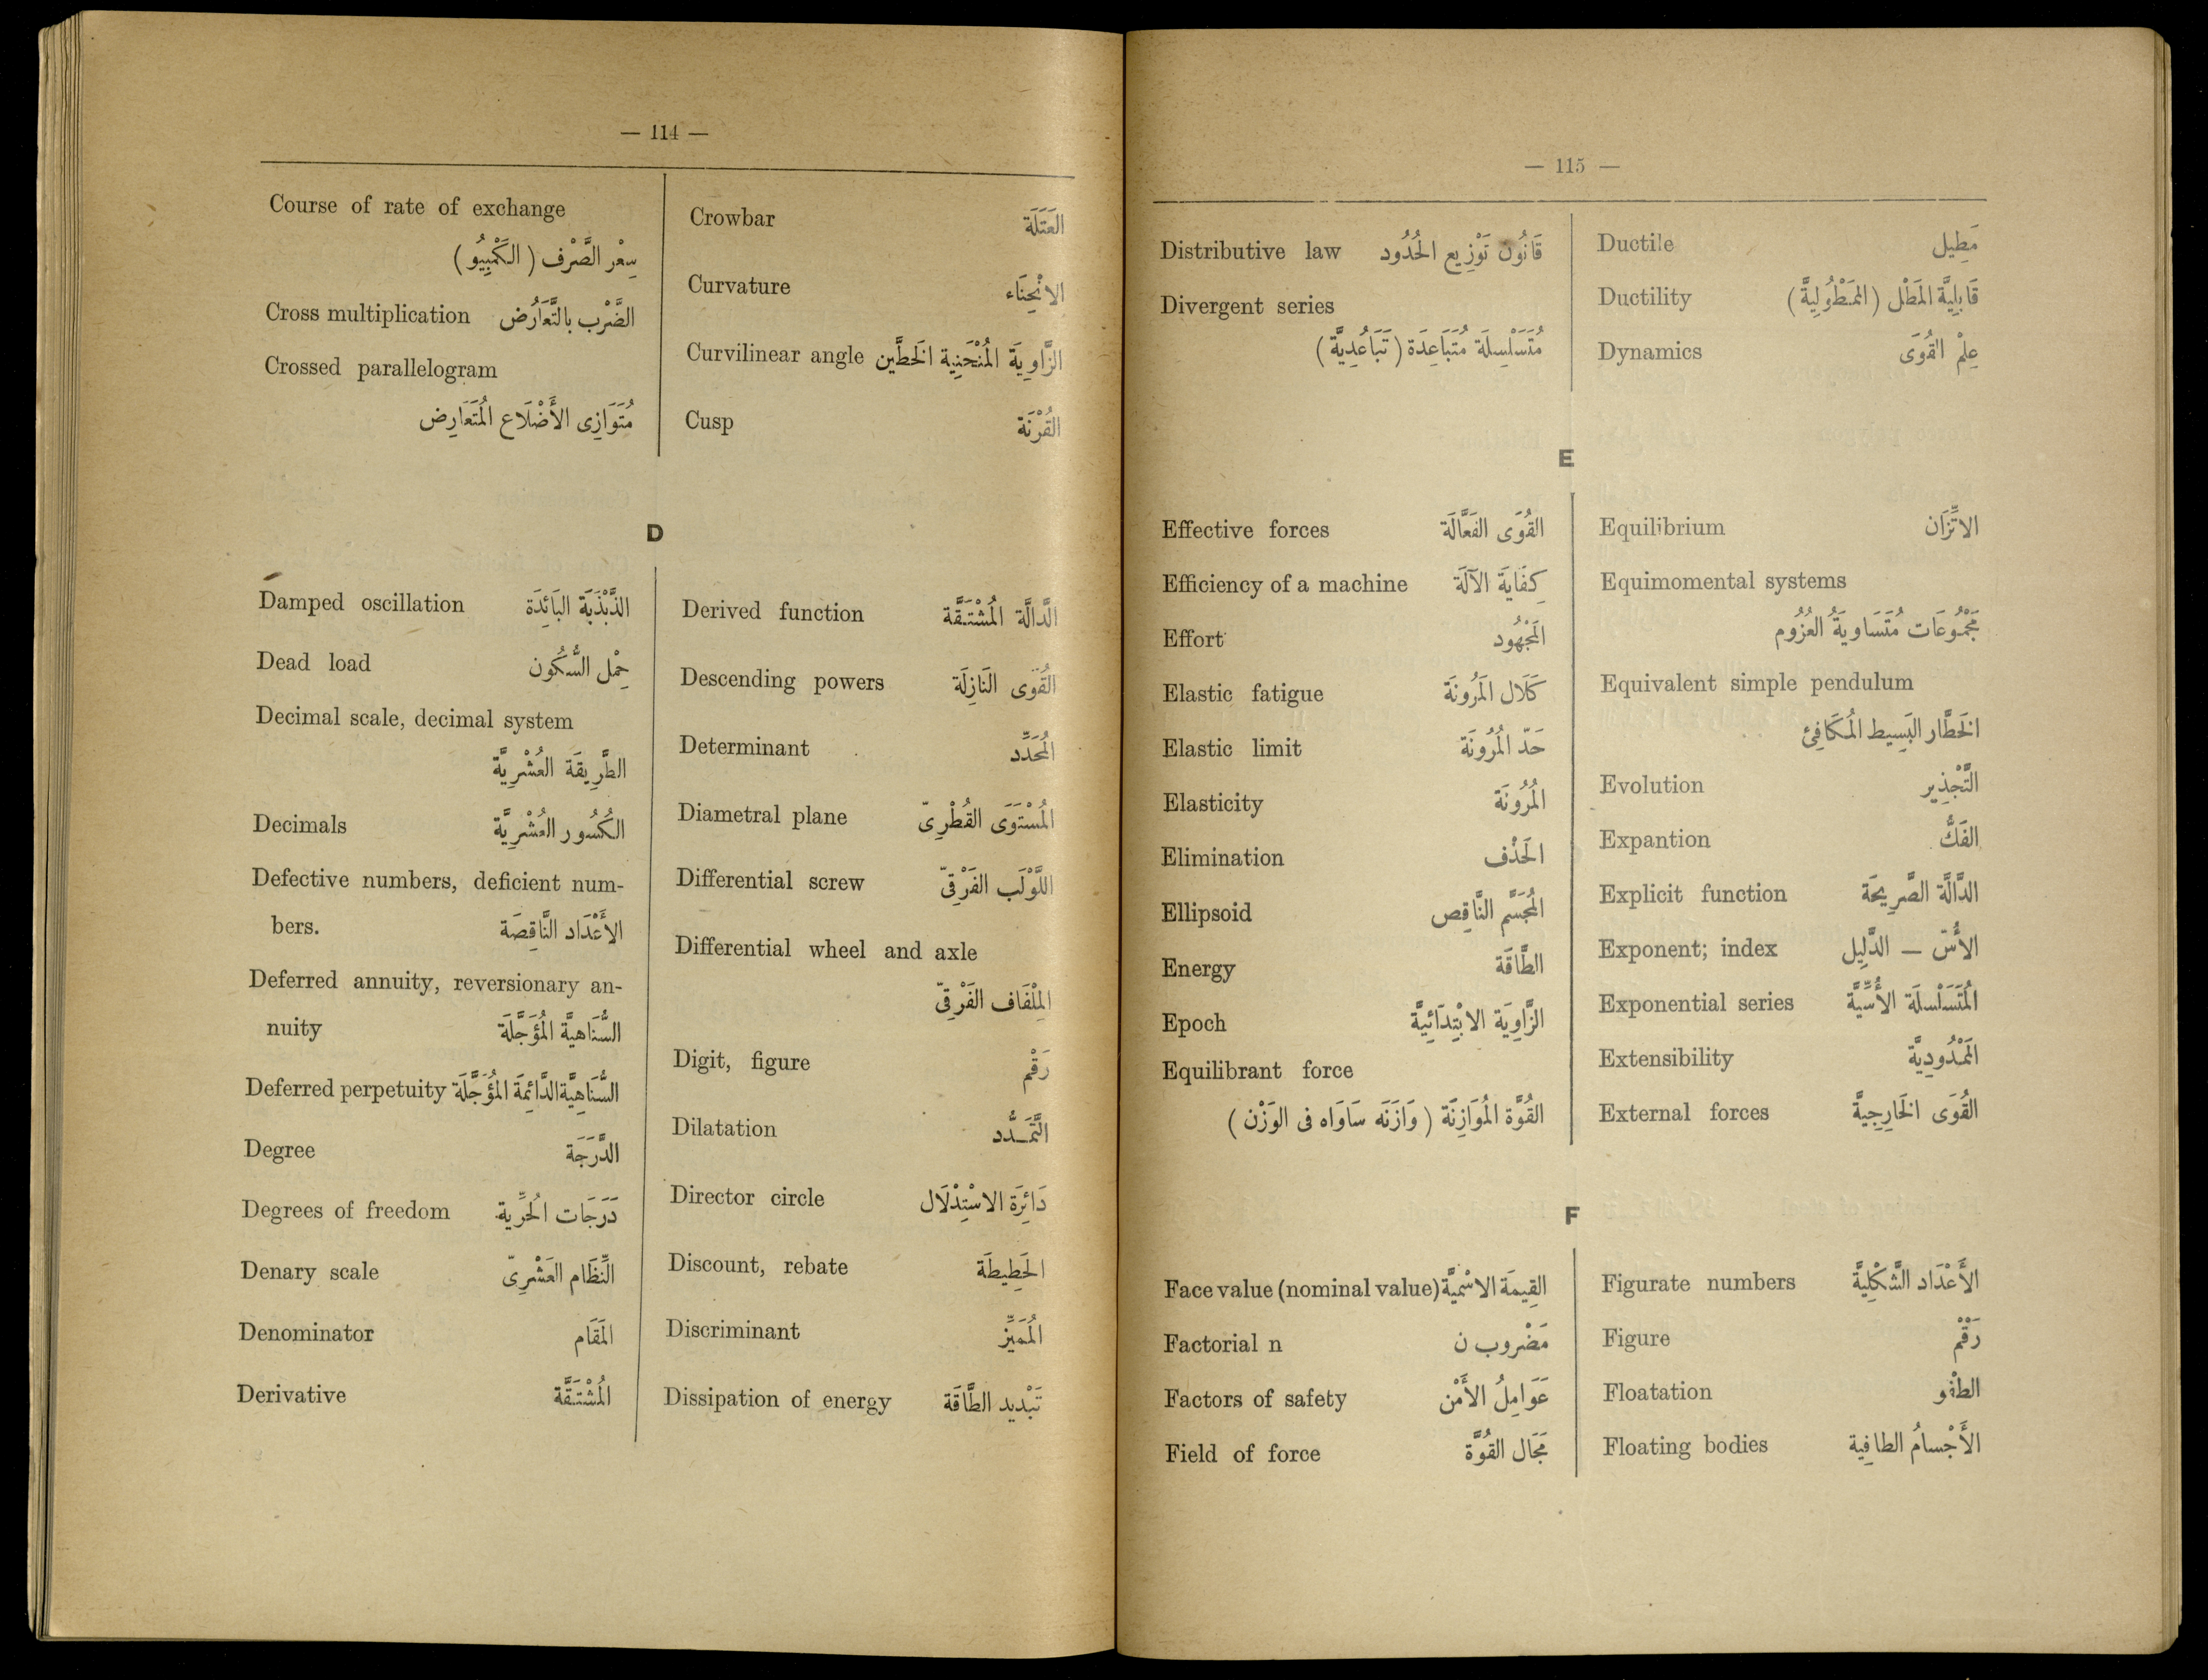 — 114 —
Course of rate of exchange
سِعْر الصَّرْف ( الكَمْبِيُو )
Cross multiplication الضَّرْب بالتَّعَارُض
Crossed parallelogram
مُتَوَازِى الأَضْلَاع المُتَعَارِض
Crowbar العَتَلَة
Curvature الانْحِنَاء
Curvilinear angle الزَّاوِيَة المُنْحَنِية الخَطَّين
Cusp القُرْنَة
D
Damped oscillation الذَّبْذَبَة البَائِدَة
Dead load حِمْل السُّكُون
Decimal scale, decimal system
الطَّرِيقَة العُشْرِيَّة
Decimals الكُسُور العُشْرِيَّة
Defective numbers, deficient num-
bers. الأَعْدَاد النَّاقِصَة
Deferred annuity, reversionary an-
nuity السُّنَاهيَّة المُؤَجَّلَة
Deferred perpetuity السُّنَاهِيَّة الدَّائِمَة المُؤَجَّلَة
Degree الدَّرَجَة
Degrees of freedom دَرَجَات الحُرِّية
Denary scale النِّظَام العَشْرِىّ
Denominator المَقَام
Derivative المُشْتَقَّة
Derived function الدَّالَّة المُشْتَقَّة
Descending powers القُوَى النَازِلَة
Determinant المُحَدِّد
Diametral plane المُسْتَوَى القُطْرِىّ
Differential screw اللَّوْلَب الفَرْقِىّ
Differential wheel and axle
المِلْفَاف الفَرْقِىّ
Digit, figure رَقْم
Dilatation التَّمَدُّد
Director circle دَائِرَة الاسْتِدْلَال
Discount, rebate الحَطِيطَة
Discriminant المُمَيِّز
Dissipation of energy تَبْدِيد الطَّاقَة
— 115 —
Distributive law قَانُون تَوْزِيع الحُدُود
Divergent series
مُتَسَلْسِلَة مُتَبَاعِدَة ( تَبَاعُدِيَّة )
Ductile مَطِيل
Ductility قَابِلِيَّة المَطْل ( المَمْطُولِيَّة )
Dynamics عِلْم القُوَى
E
Effective forces القُوَى الفَعَّالَة
Efficiency of a machine كِفَايَة الآلَة
Effort المَجْهُود
Elastic fatigue كَلَال المَرُونَة
Elastic limit حَدّ المُرُونَة
Elasticity المُرُونَة
Elimination الحَذْف
Ellipsoid المُجَسَّم النَّاقِص
Energy الطَّاقَة
Epoch الزَّاوِيَة الابْتِدَائِيَّة
Equilibrant force
القُوَّة المُوَازِنَة ( وَازَنَه سَاوَاه فى الوَزْن )
Equilibrium الاتِّزَان
Equimomental systems
مَجْمُوعَات مُتَسَاويَةُ العُزُوم
Equivalent simple pendulum
الخَطَّار البَسِيط المُكَافِئ
Evolution التَّجْذِير
Expantion الفَكّ
Explicit function الدَّالَّة الصَّرِيحَة
Exponent; index الأُسّ — الدَّلِيل
Exponential series المُتَسَلْسلَة الأُسِّيَّة
Extensibility المَمْدُودِيَّة
External forces القُوَى الخَارِجِيَّة
F
Face value (nominal value) القِيمَة الاسْمِيَّة
Factorial n مَضْروب ن
Factors of safety عَوَامِلُ الأَمْن
Field of force مَجَال القُوَّة
Figurate numbers الأَعْدَاد الشَّكْلِيَّة
Figure رَقْم
Floatation الطفْو
Floating bodies الأَجْسامُ الطافِية